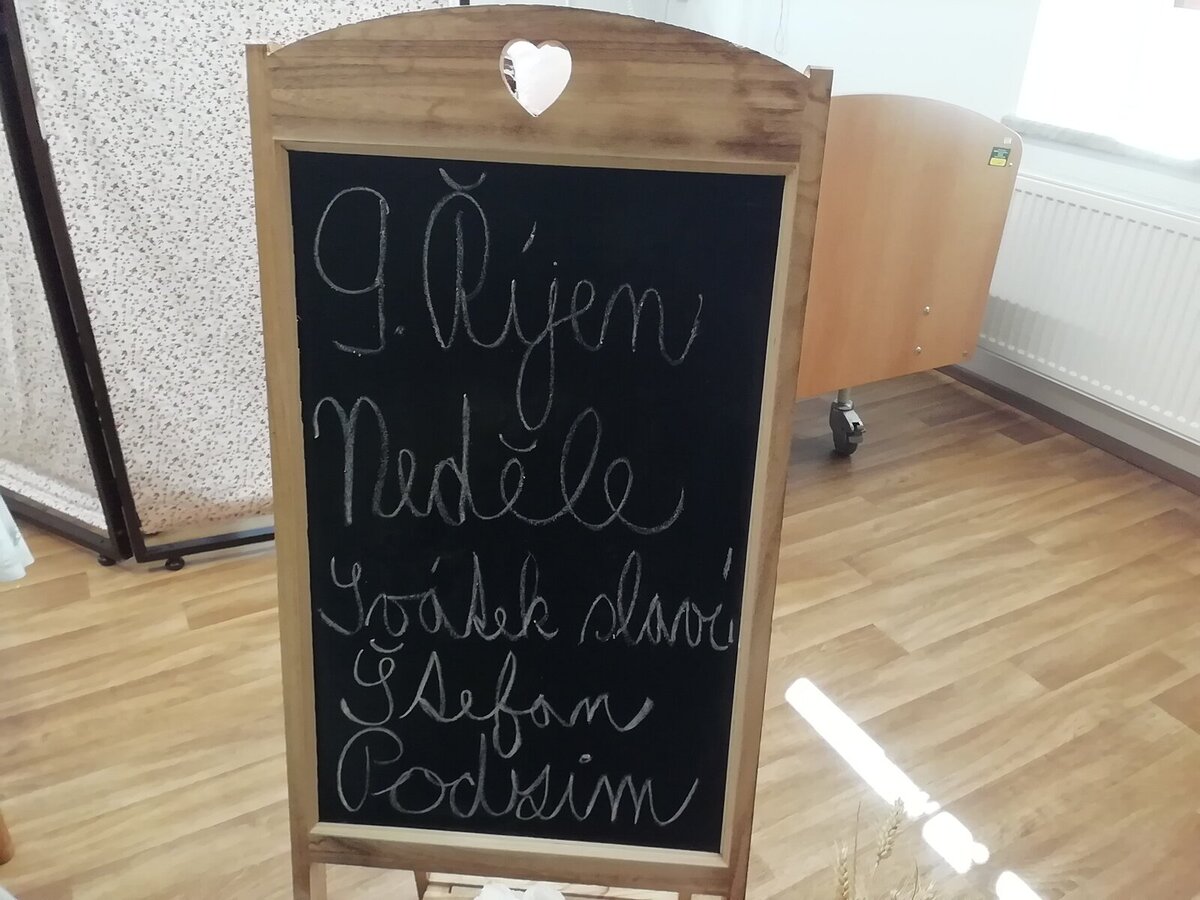 9. Říjen
Neděle
Svátek slaví
Štefan
Podzim